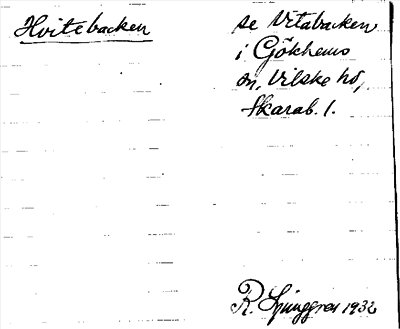 Hvitebacken
se Vitabacken
i Gökhems
sn, Vilske hd,
Skarab. l.
R. Ljunggren 1932